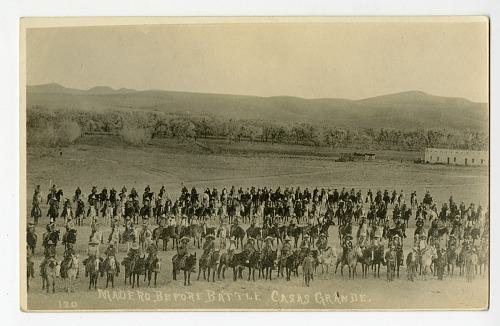 120 MADERO BEFORE BATTLE CASAS GRANDE.